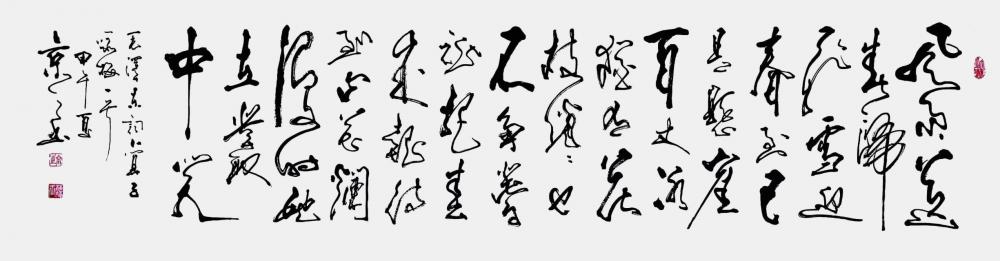 风雨送
春歸
飛雪迎
春到已
是懸崖
百丈冰
猶有花
枝俏〻也
不争春
只把春
来報待
到山花爛
漫时她
在叢
中笑
毛澤东词卜算子
咏梅一首
甲午夏